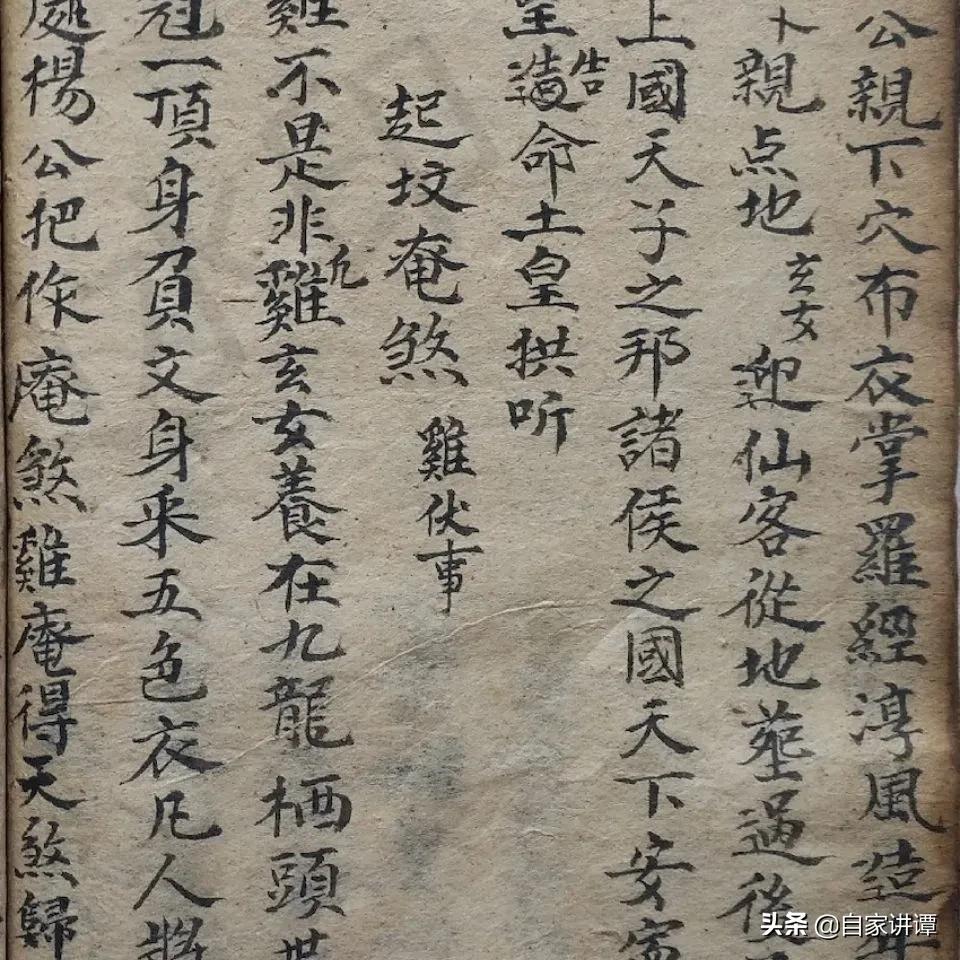 公親下穴布衣掌羅經淳風造
下親点地玄女迎仙客從地塟過後
上國天子之邦諸侯之國天下安
皇造告命土皇拱听
起坟庵煞雞伏事
雞不是非凢雞玄女養在九龍栖頭世
冠一頂身負文身采五色衣凡人將
處楊公把作庵煞雞庵得天煞歸
头条 @自家讲谭